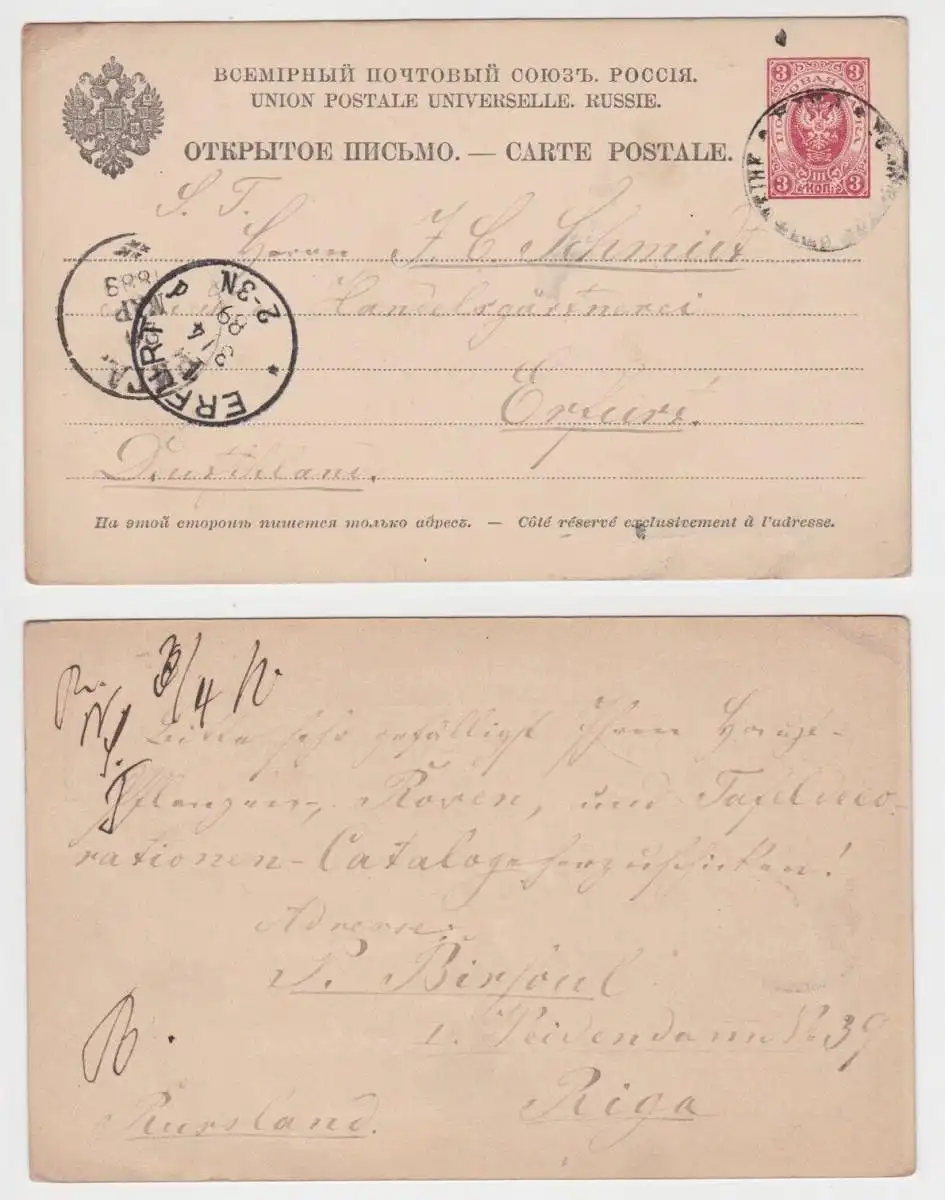 ВСЕМІРНЫЙ ПОЧТОВЫЙ СОЮЗЪ. РОССІЯ.
UNION POSTALE UNIVERSELLE. RUSSIE.
ОТКРЫТОЕ ПИСЬМО. — CARTE POSTALE.
3 3
ПОЧТОВАЯ МАРКА
3 КОП. 3
S. T.
Herrn J. C. Schmidt
Handelsgärtnerei
Erfurt.
Deutschland.
1889
МАР
ERFURT
3 4
89
2-3N
На этой сторонѣ пишется только адресъ. — Côté réservé exclusivement à l'adresse.
3/4
Bitte sehr gefälligst Ihren Haupt-
Pflanzen-, Rosen, und Tafeldeco-
rationen-Cataloge herzuschicken!
Adresse:
Riga
Russland.